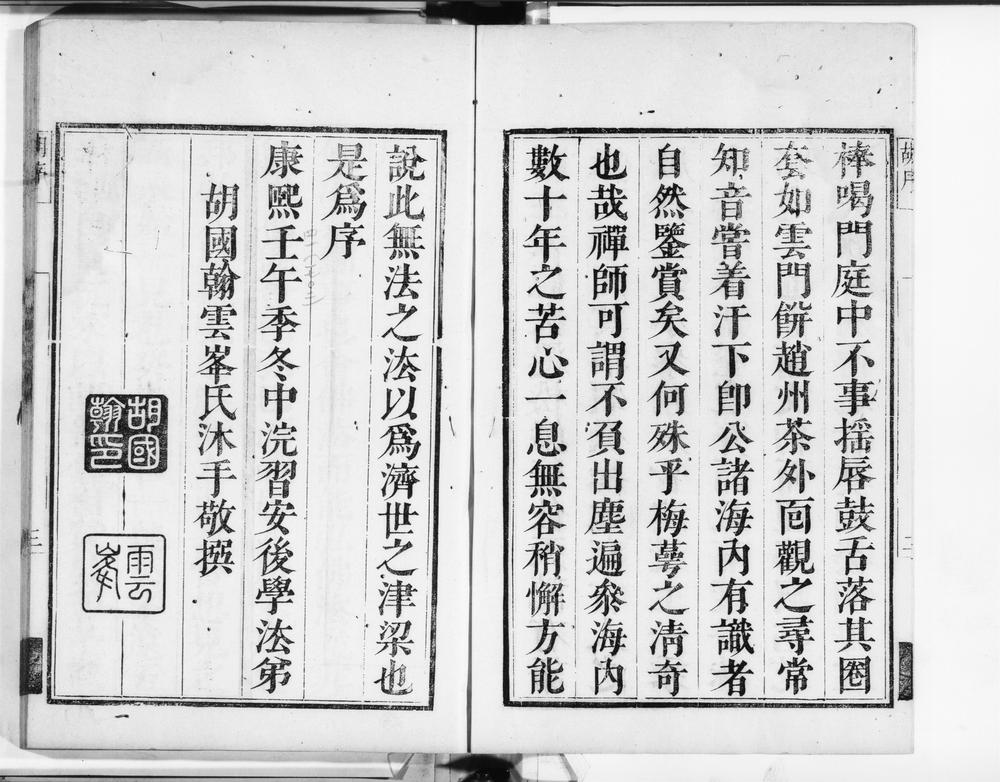 棒喝門庭中不事揺唇鼓舌落其圈
套如雲門餅趙州茶外面觀之尋常
知音嘗着汗下卽公諸海內有識者
自然鑒賞矣又何殊乎梅萼之淸奇
也哉禪師可謂不負出塵遍叅海內
數十年之苦心一息無容稍懈方能
說此無法之法以爲濟世之津梁也
是爲序
康熙壬午季冬中浣習安後學法弟
胡國翰雲峯氏沐手敬撰
胡國翰印
雲峯
胡序
二
三